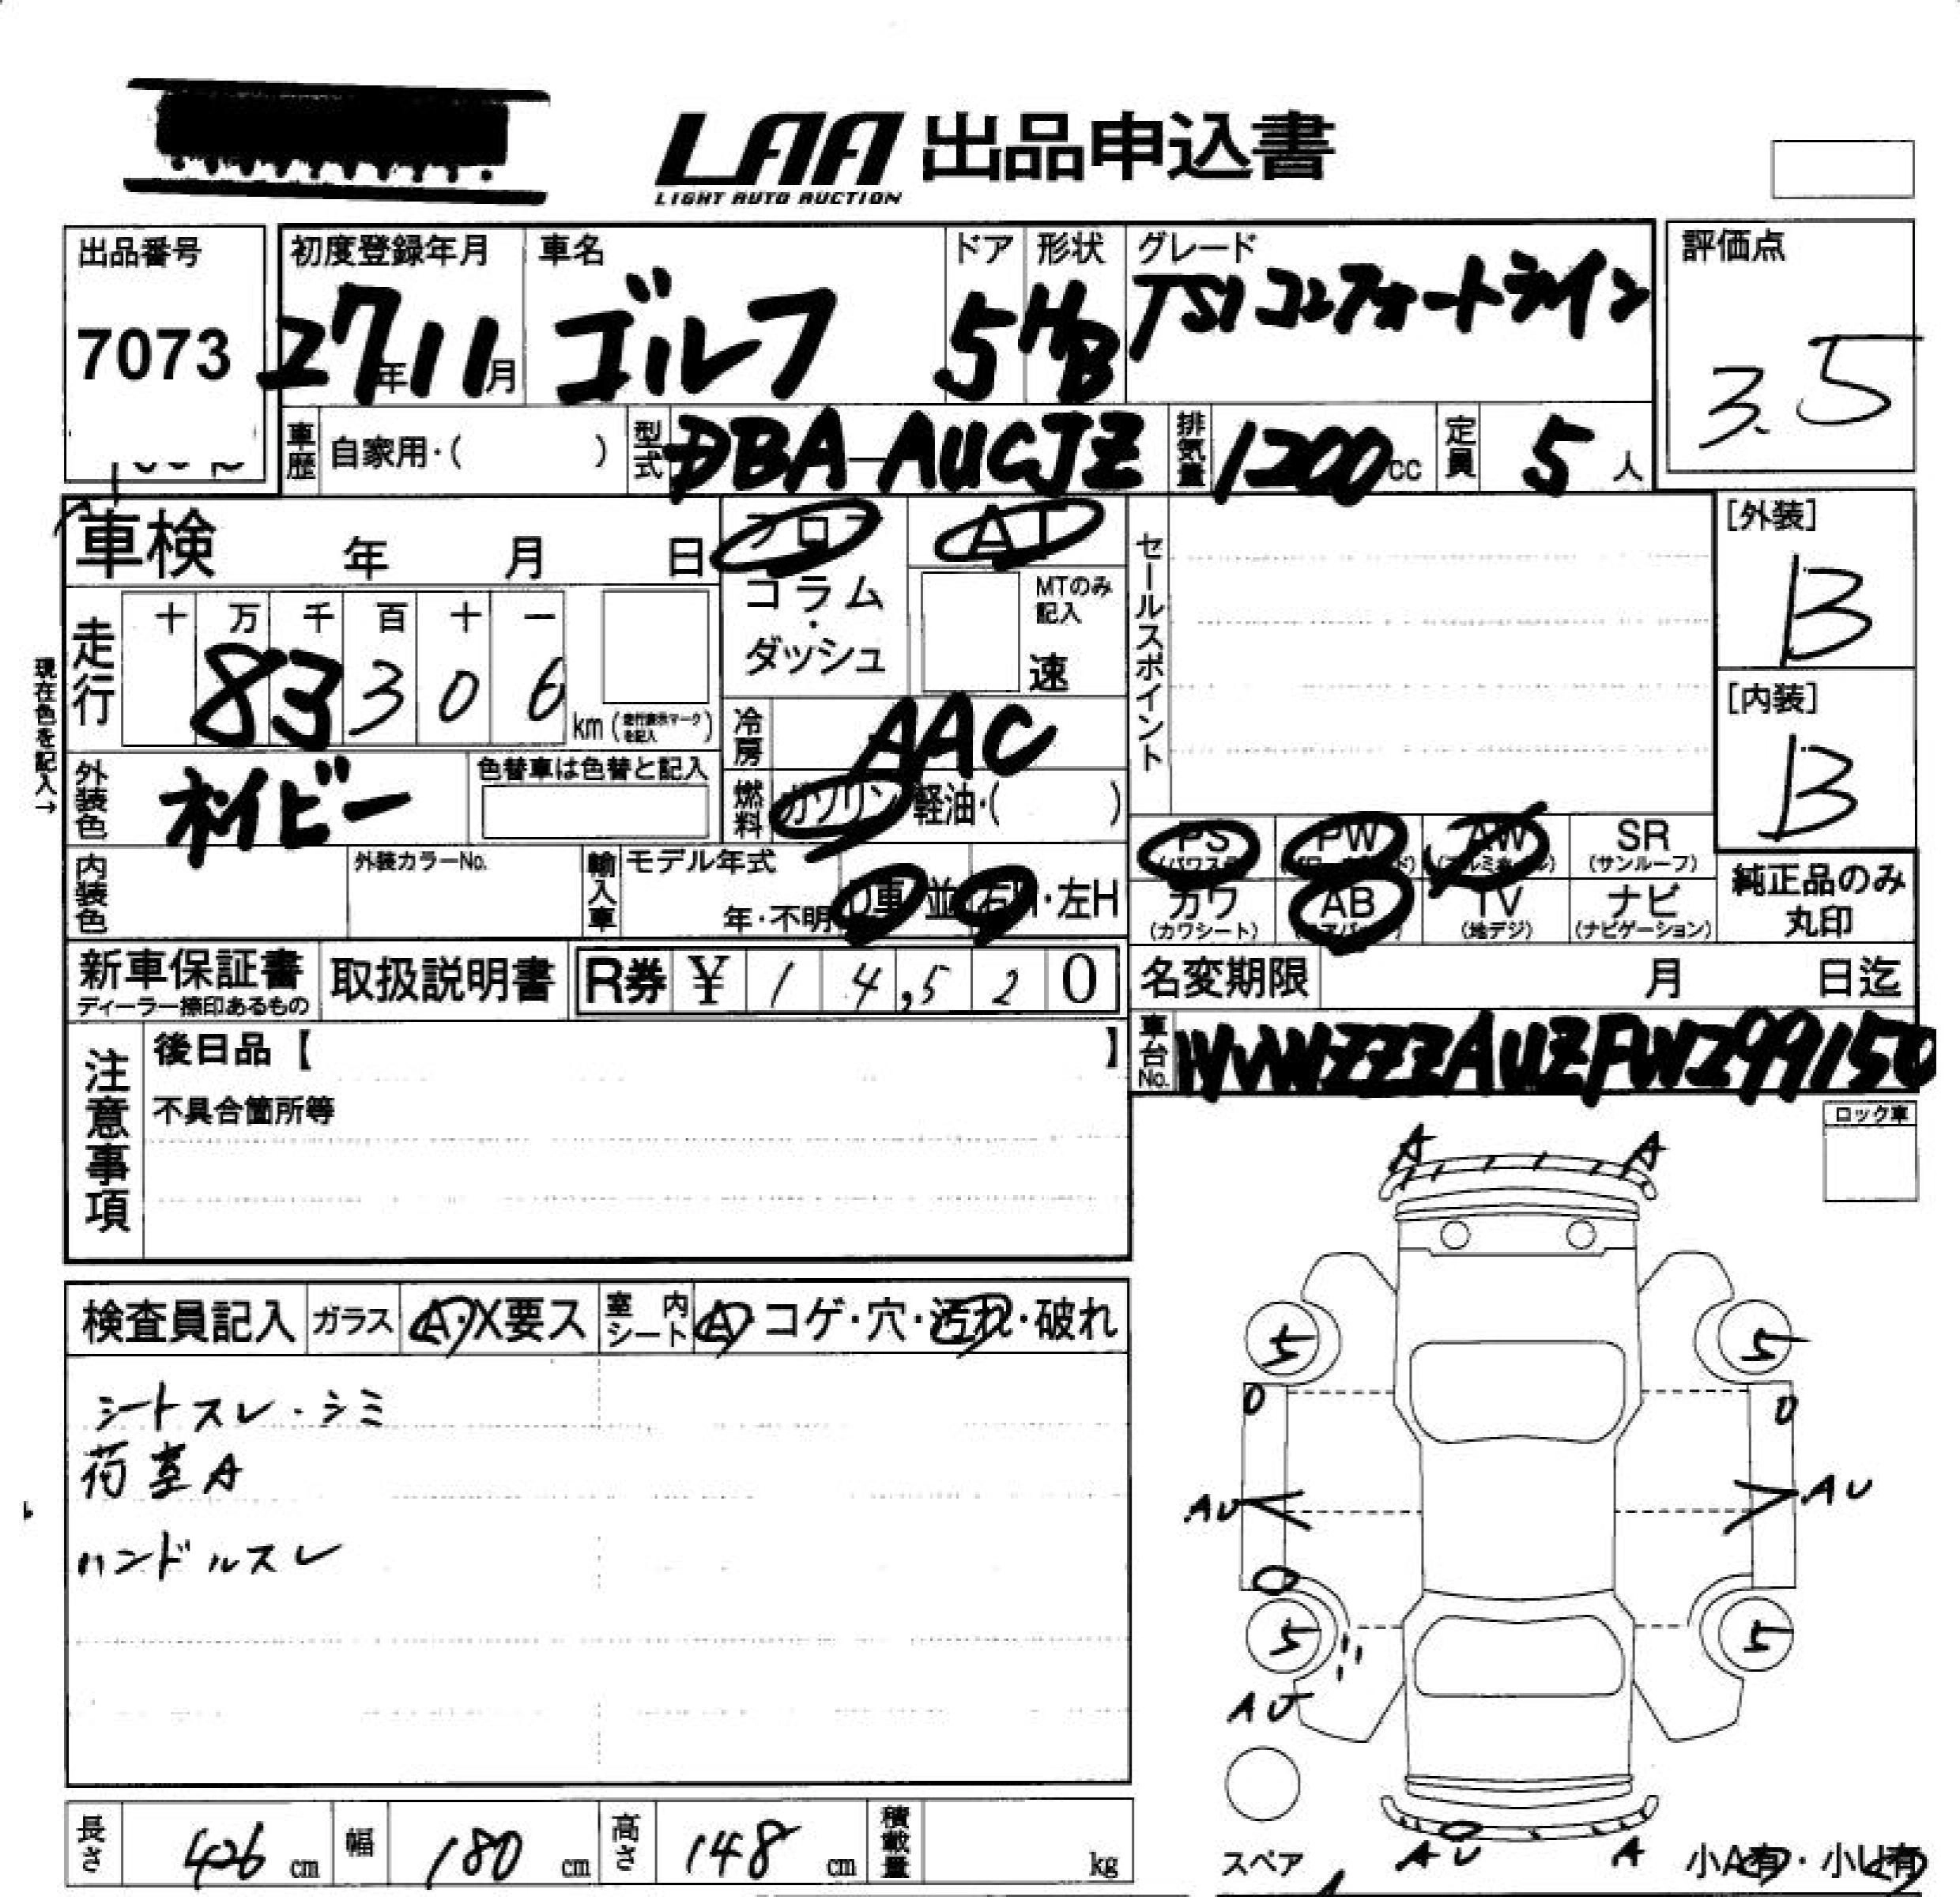 LAA 出品申込書
LIGHT AUTO AUCTION
出品番号
7073
初度登録年月
27年11月
車名
ゴルフ
ドア
5
形状
H/B
グレード
TSIコンフォートライン
評価点
3.5
車歴 自家用・( )
型式 DBA-AUCJZ
排気量 1200cc
定員 5人
車検 年 月 日
フロア
コラム
・
ダッシュ
AT
MTのみ記入
速
セールスポイント
[外装]
B
[内装]
B
現在色を記入→
走行
十 万 千 百 十 一
8 3 3 0 6
km (走行表示マークを記入)
冷房 AAC
燃料 ガソリン・軽油・( )
外装色 ネイビー
色替車は色替と記入
内装色
外装カラーNo.
輸入車
モデル年式
年・不明
D車・並
右H・左H
PS
PW
AW
SR
(パワステ)
(アルミホイール)
(サンルーフ)
カワ
AB
TV
ナビ
(カワシート)
(エアバッグ)
(地デジ)
(ナビゲーション)
純正品のみ
丸印
新車保証書
ディーラー捺印あるもの
取扱説明書
R券 ¥ 1 4,5 2 0
名変期限 月 日迄
車台No. WVWZZZAUZFW299150
注意事項
後日品【 】
不具合箇所等
ロック車
検査員記入
ガラス A・X要ス
室内シート A・コゲ・穴・汚れ・破れ
シートスレ・シミ
荷室A
ハンドルスレ
A A
5 5
AU AU
5 5
AU
スペア
AU A
小A有・小U有
長さ 426cm
幅 180cm
高さ 148cm
積載量 kg